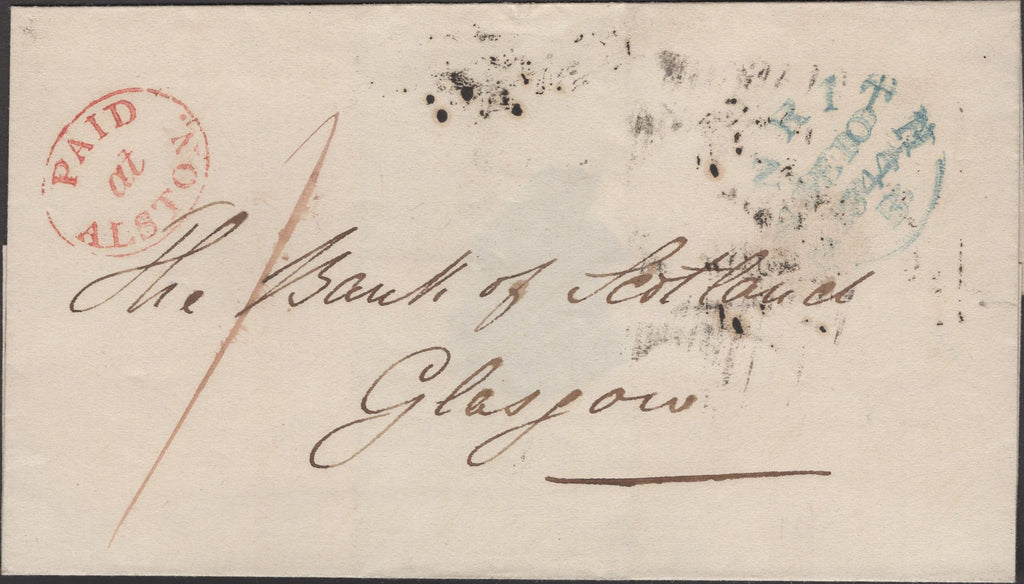 PAID
at
ALSTON
1
The Bank of Scotland
Glasgow